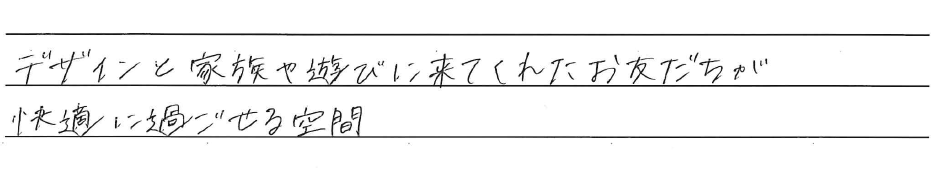 デザインと家族や遊びに来てくれたお友だちが
快適に過ごせる空間